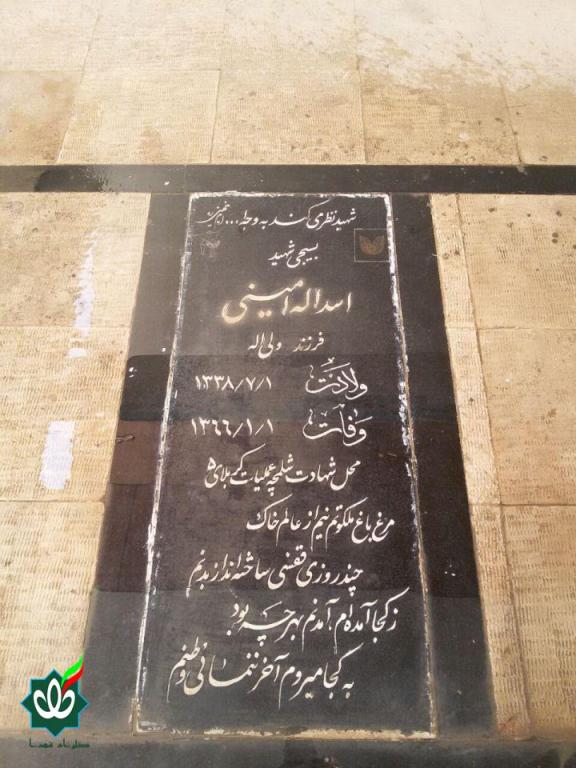 شهید نظری کند به وجه ا...
بسیجی شهید
اسداله امینی
فرزند ولی اله
ولادت ۱۳۳۸/۷/۱
وفات ۱۳۶۶/۱/۱
محل شهادت شلمچه عملیات کربلای ۵
مرغ باغ ملکوتم نیم از عالم خاک
چند روزی قفسی ساخته اند از بدنم
ز کجا آمده ام آمدنم بهر چه بود
به کجا میروم آخر ننمائی وطنم